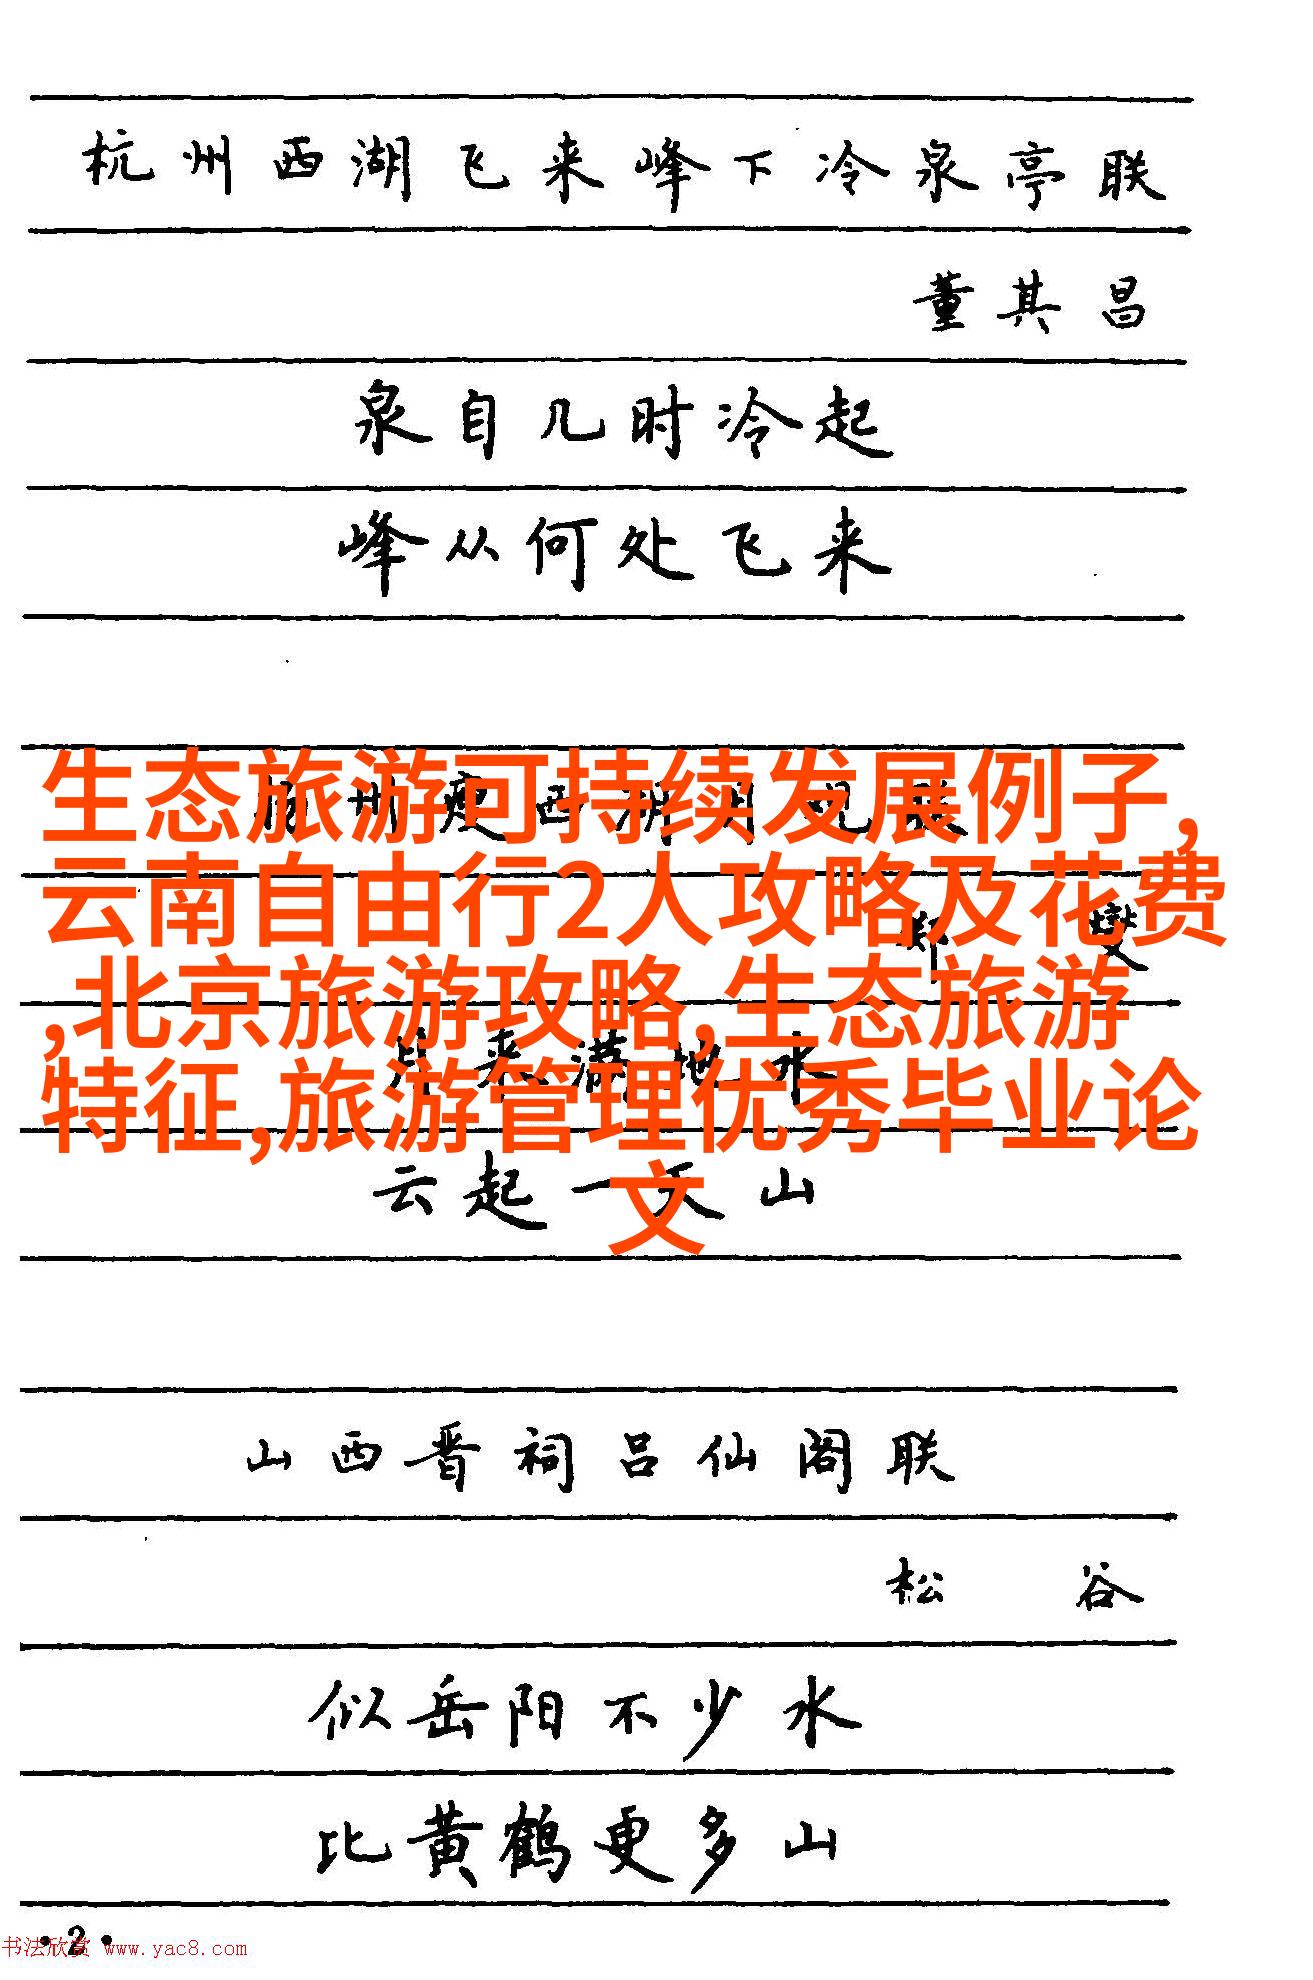 杭州西湖飞来峰下冷泉亭联
董其昌
泉自几时冷起
峰从何处飞来
生态旅游可持续发展例子,
云南自由行2人攻略及花费
,北京旅游攻略,生态旅游
特征,旅游管理优秀毕业论
文
州瘦西湖月观联
郑燮
月来满地水
云起一天山
山西晋祠吕仙阁联
松谷
似岳阳不少水
比黄鹤更多山
·2·
书法欣赏 www.yac8.com